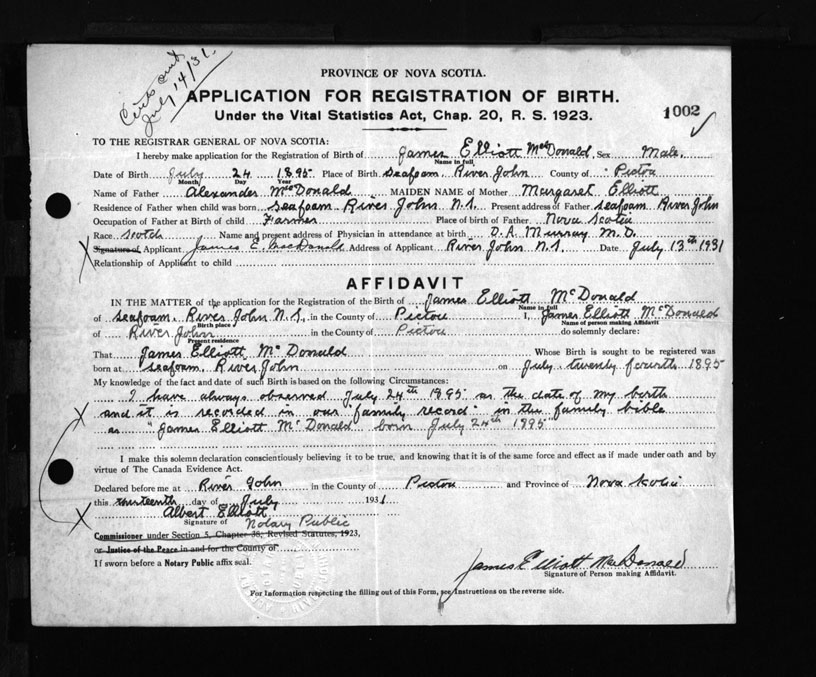 Certs sent
July 14/31.
PROVINCE OF NOVA SCOTIA.
APPLICATION FOR REGISTRATION OF BIRTH.
Under the Vital Statistics Act, Chap. 20, R. S. 1923.
1002
TO THE REGISTRAR GENERAL OF NOVA SCOTIA:
I hereby make application for the Registration of Birth of James Elliott McDonald, Sex Male.
Name in full
Date of Birth July 24 1895 Place of Birth Seafoam, River John County of Pictou
Month Day Year
Name of Father Alexander McDonald MAIDEN NAME of Mother Margaret Elliott
Residence of Father when child was born, Seafoam River John N.S. Present address of Father Seafoam River John
Occupation of Father at Birth of child Farmer Place of birth of Father Nova Scotia
Race Scotch Name and present address of Physician in attendance at birth D.A. Murray M.D.
Signature of Applicant James E. MacDonald Address of Applicant River John N.S. Date July 13th 1931
Relationship of Applicant to child
AFFIDAVIT
IN THE MATTER of the application for the Registration of the Birth of James Elliott McDonald
Name in full
of Seafoam, River John N.S., in the County of Pictou I, James Elliott McDonald
Birth place Name of person making Affidavit
of River John in the County of Pictou do solemnly declare:
Present residence
That James Elliott McDonald Whose Birth is sought to be registered was
born at Seafoam, River John on July twenty fourth 1895
My knowledge of the fact and date of such Birth is based on the following Circumstances:
I have always observed July 24th 1895 as the date of my birth
and it is recorded in our "family record" in the family bible
as "James Elliott McDonald born July 24th 1895"
I make this solemn declaration conscientiously believing it to be true, and knowing that it is of the same force and effect as if made under oath and by
virtue of The Canada Evidence Act.
Declared before me at River John in the County of Pictou and Province of Nova Scotia
this thirteenth day of July 1931
Albert Elliott
Signature of Notary Public
Commissioner under Section 5, Chapter 36, Revised Statutes, 1923,
or Justice of the Peace in and for the County of
If sworn before a Notary Public affix seal.
James Elliott MacDonald
Signature of Person making Affidavit.
For Information respecting the filling out of this Form, see Instructions on the reverse side.